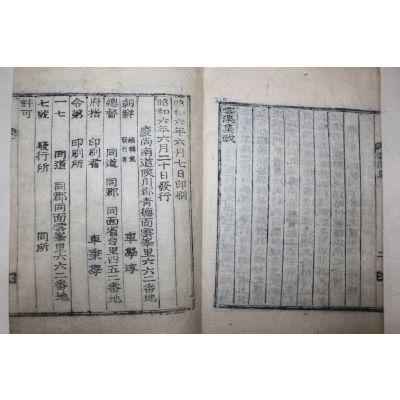 雲溪集跋
昭和六年六月七日印刷
昭和六年六月二十日發行
慶尚南道陜川郡青德面雲峯里六六二番地
朝鮮 編輯兼發行者 車學淳
總督 同道 同郡 同面省台里四五二番地
府指 印刷者 車秉學
令第 印刷所
一七 同道 同郡同面雲峯里六六二番地
七號 發行所 同所
許可